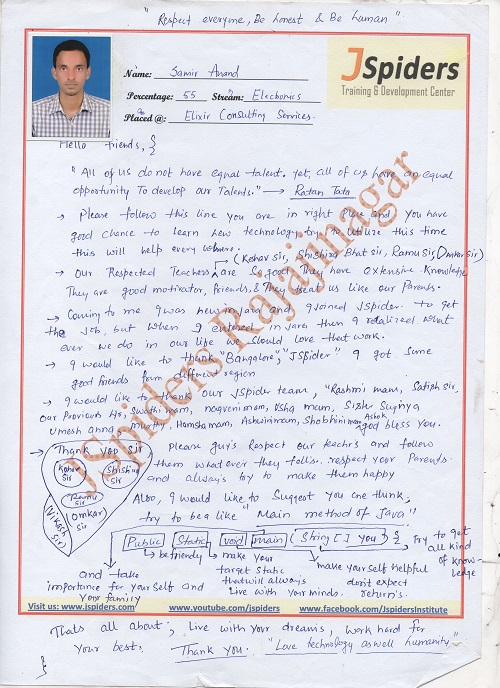 "Respect everyone, Be honest & Be human"
JSpiders
Training & Development Center
Name: Samir Anand
Percentage: 55 Stream: Electronics
Placed @: Elixir Consulting Services.
Hello friends, {
"All of us do not have equal talent. Yet, all of us have an equal
opportunity To develop our Talents." → Ratan Tata
→ Please follow this line you are in right place and you have
good chance to learn new technology, try to utilize this time
this will help every where.
(Keshav sir, Shishira Bhat sir, Ramu sir, Omkar sir)
→ Our Respected Teachers are so good They have extensive knowledge
They are good motivator, friends, & They treat us like our Parents.
→ Coming to me I was new in java and I joined JSpider to get
the job, but when I entered in java then I realized what
ever we do in our life we should love that work.
→ I would like to thank "Bangalore", "JSpider" I got some
good friends from different region
→ I would like to thank our JSpider team, "Rashmi mam, Satish sir,
our Previous Hr, Swathi mam, nagveni mam, Usha mam, Sister Sugnya
Umesh anna, murthy, Hamsha mam, Ashwini mam, Shobhini mam, Ashok god bless you.
→ Thank you sir
Keshav sir
Shishira sir
Ramu sir
Omkar sir
Vikash sir
Please guy's Respect our teachrs and follow
them whatever they tells. respect your Parents
and always try to make them happy
Also, I would like to suggest you one think,
try to be a like "Main method of Java"
Public Static void main (String [] you) {
try to get all kind of knowledge
be friendly
make your target static that will always live with your minds.
make yourself helpful don't expect return's.
and take importance for yourself and your family
Visit us: www.jspiders.com www.youtube.com/jspiders www.facebook.com/JspidersInstitute
Thats all about, live with your dreams, work hard for
your best. Thank you. "Love technology as well humanity"
}
JSpiders Rajajinagar